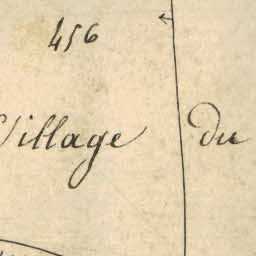 456
Village du